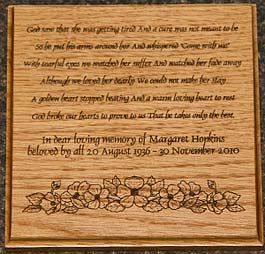 God saw that she was getting tired And a cure was not meant to be
So he put his arms around her And whispered "Come with me"
With tearful eyes we watched her suffer And watched her fade away
Although we loved her dearly We could not make her stay
A golden heart stopped beating And a warm loving heart to rest
God broke our hearts to prove to us That he takes only the best.
In dear loving memory of Margaret Hopkins
beloved by all 20 August 1936 - 30 November 2010